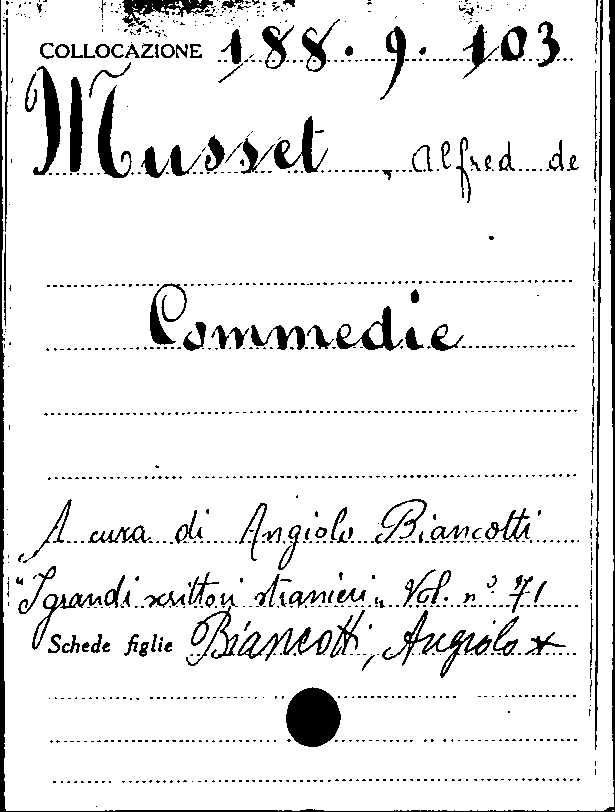 COLLOCAZIONE 188.9.103
Musset, Alfred de
Commedie
A cura di Angiolo Biancotti
"I grandi scrittori stranieri" Vol. n° 71
Schede figlie Biancotti, Angiolo *